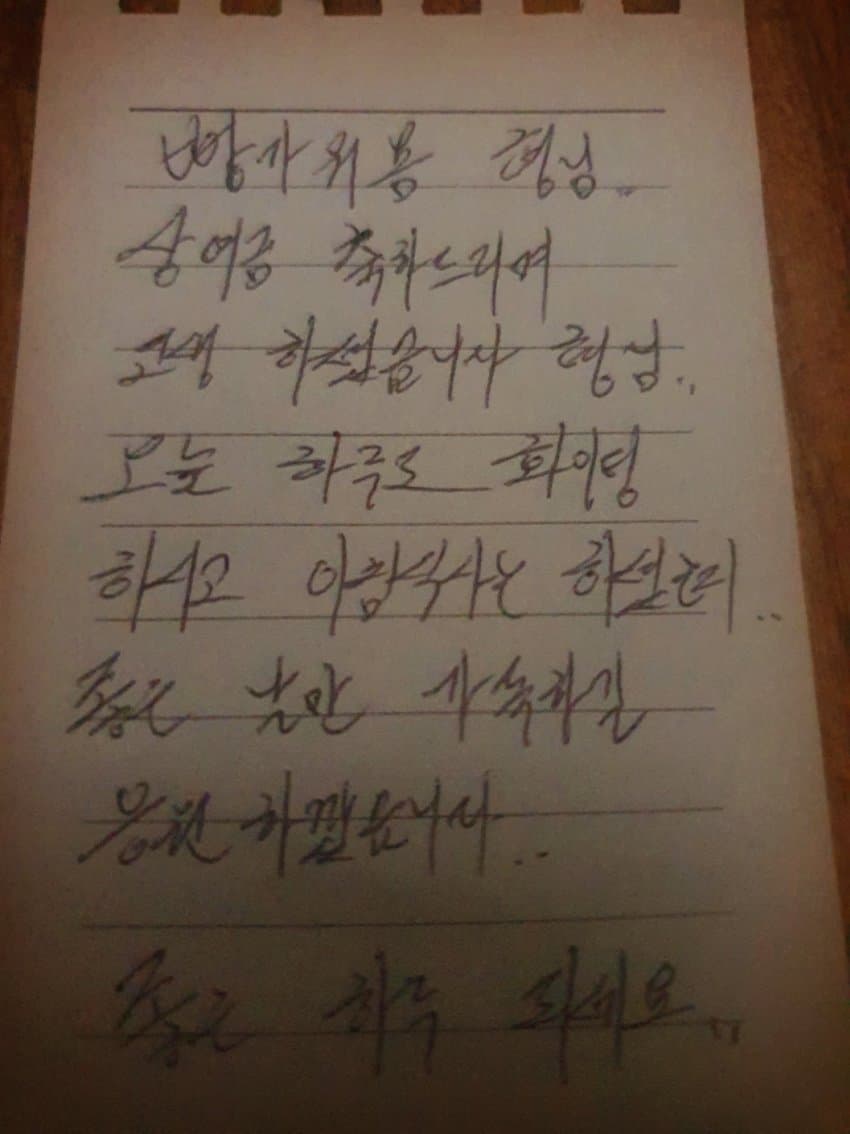 반가워용 형님..
상여금 축하드리며
고생 하셨습니다 형님..
오늘 하루도 화이팅
하시고 아참식사는 하셨는지..
좋은 날만 가득하길
응원 하겠습니다..
좋은 하루 되세요..